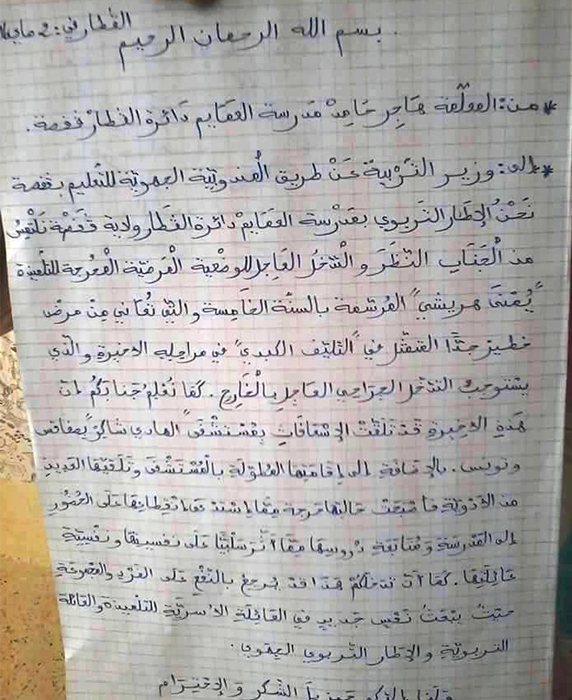 القطار في: 2 ماي
بسم الله الرحمان الرحيم.
* من: المعلمة هاجر حامد مدرسة العقايم دائرة القطار قفصة.
* إلى: وزير التربية عن طريق المندوبية الجهوية للتعليم بقفصة
نحن الإطار التربوي بمدرسة العقايم دائرة القطار ولاية قفصة نلتمس
من الجناب النظر والتدخل العاجل للوضعية المرضية الحرجة للتلميذة
"يمنى هريشي" المرسمة بالسنة الخامسة والتي تعاني من مرض
خطير جدًّا المتمثل في "التليف الكبدي" في مراحله الأخيرة والذي
يستوجب التدخل الجراحي العاجل بالخارج. كما نعلم جنابكم أن
هذه الأخيرة قد تلقت الإسعافات بمستشفى "الهادي شاكر" بصفاقس
وتونس. بالإضافة إلى إقامتها المطولة بالمستشفى وتلقيها العديد
من الأدوية فأصبحت حالتها حرجة مما استدعى انقطاعها على الحضور
إلى المدرسة ومتابعة دروسها مما أثر سلبيًّا على نفسيتها ونفسية
عائلتها. كما أن تدخلكم هذا قد يرجع بالنفع على الفرد والمجموعة
حيث يبعث نفس جديد في العائلة الأسرية التلميذة والعائلة
التربوية والإطار التربوي الجهوي.
ولنا إليكم جزيل الشكر والاحترام